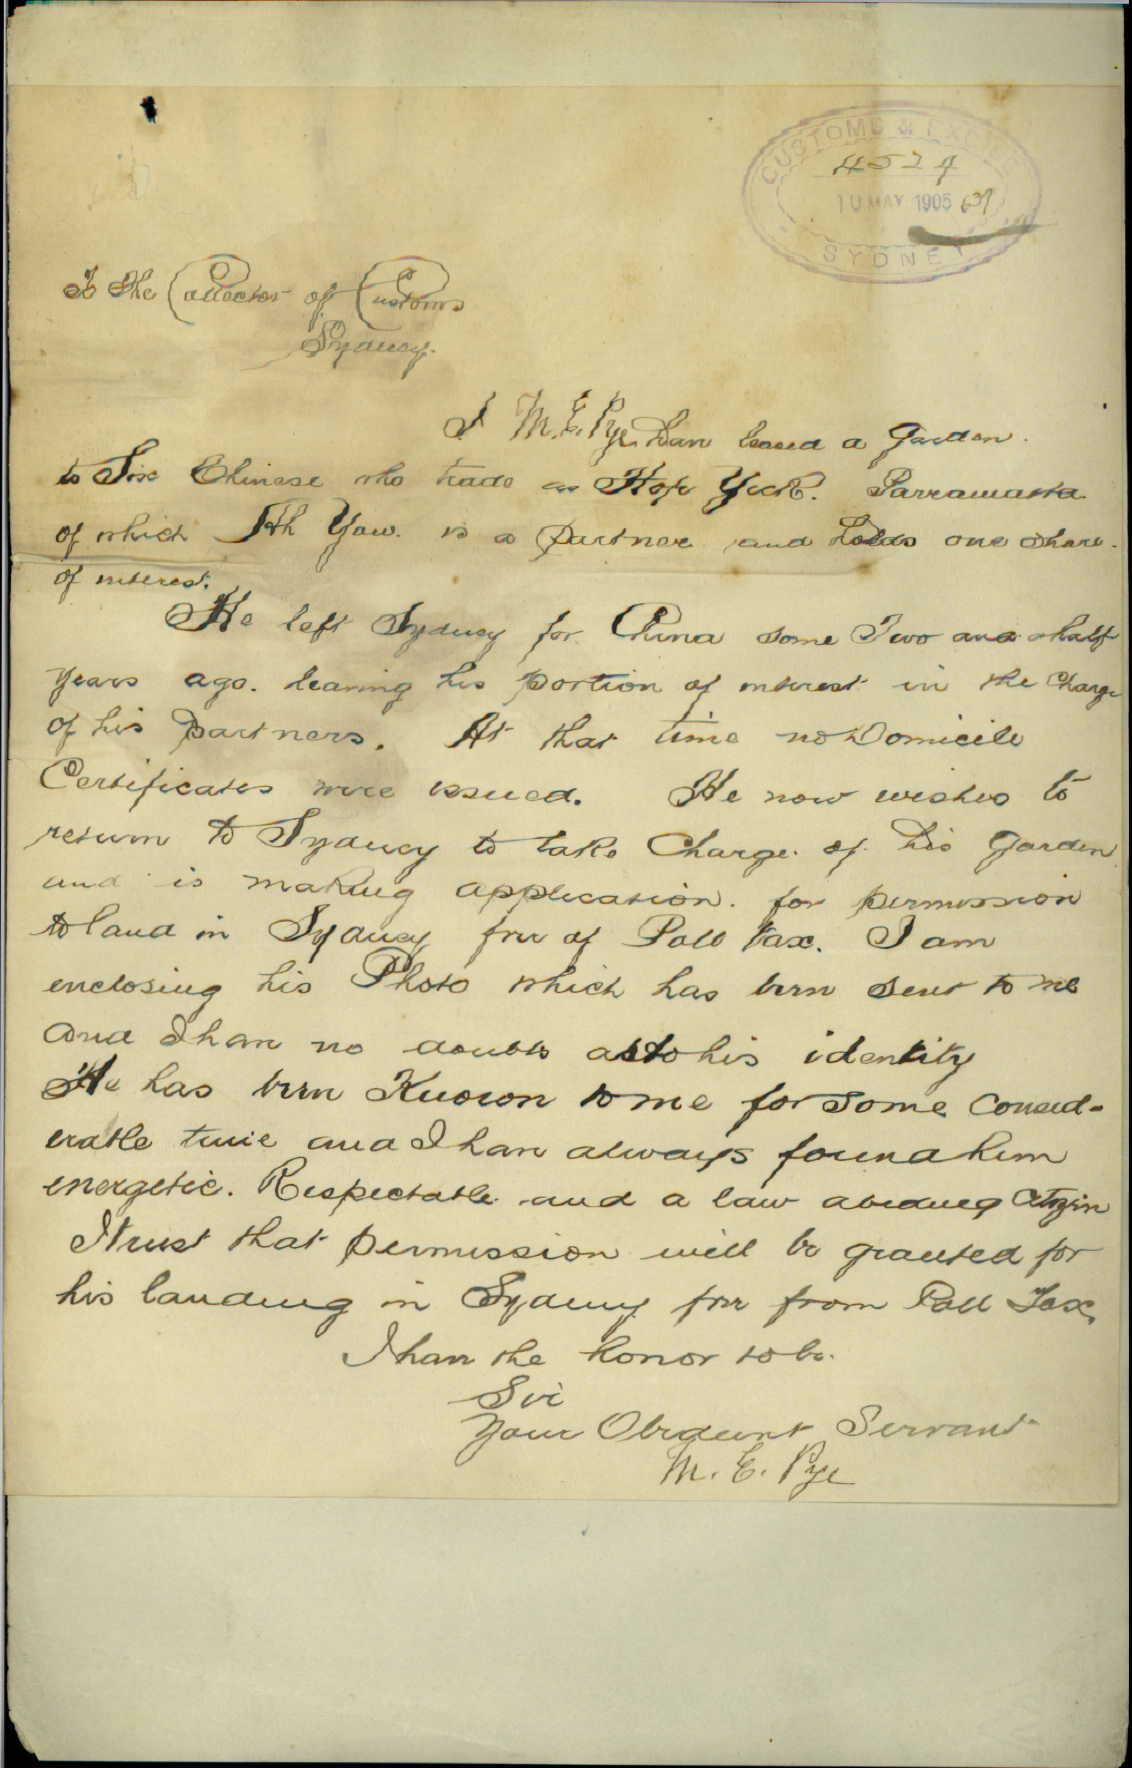 CUSTOMS & EXCISE
4529
10 MAY 1905
SYDNEY
To the Collector of Customs
Sydney.
I M. E. Pye have leased a Garden.
to Six Chinese who trade as Hop Yick. Parramatta
of which Ah Yow. is a partner and holds one share.
of interest.
He left Sydney for China some Two and a half
years ago. leaving his portion of interest in the charge
of his partners. At that time no Domicile
Certificates were issued. He now wishes to
return to Sydney to take Charge. of his Garden
and is making application. for permission
to land in Sydney free of Poll Tax. I am
enclosing his Photo which has been sent to me
and I have no doubts as to his identity
He has been Known to me for some Consid-
erable time and I have always found him
energetic. Respectable and a law abiding Citizen
I trust that permission will be granted for
his landing in Sydney free from Poll Tax.
I have the honor to be.
Sir
Your Obedient Servant
M. E. Pye